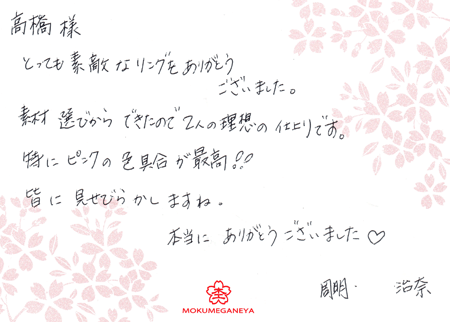 高橋様
とっても素敵なリングをありがとう
ございました。
素材選びからできたので2人の理想の仕上りです。
特にピンクの色具合が最高!!
皆に見せびらかしますね。
本当にありがとうございました♡
周明・治奈
MOKUMEGANEYA